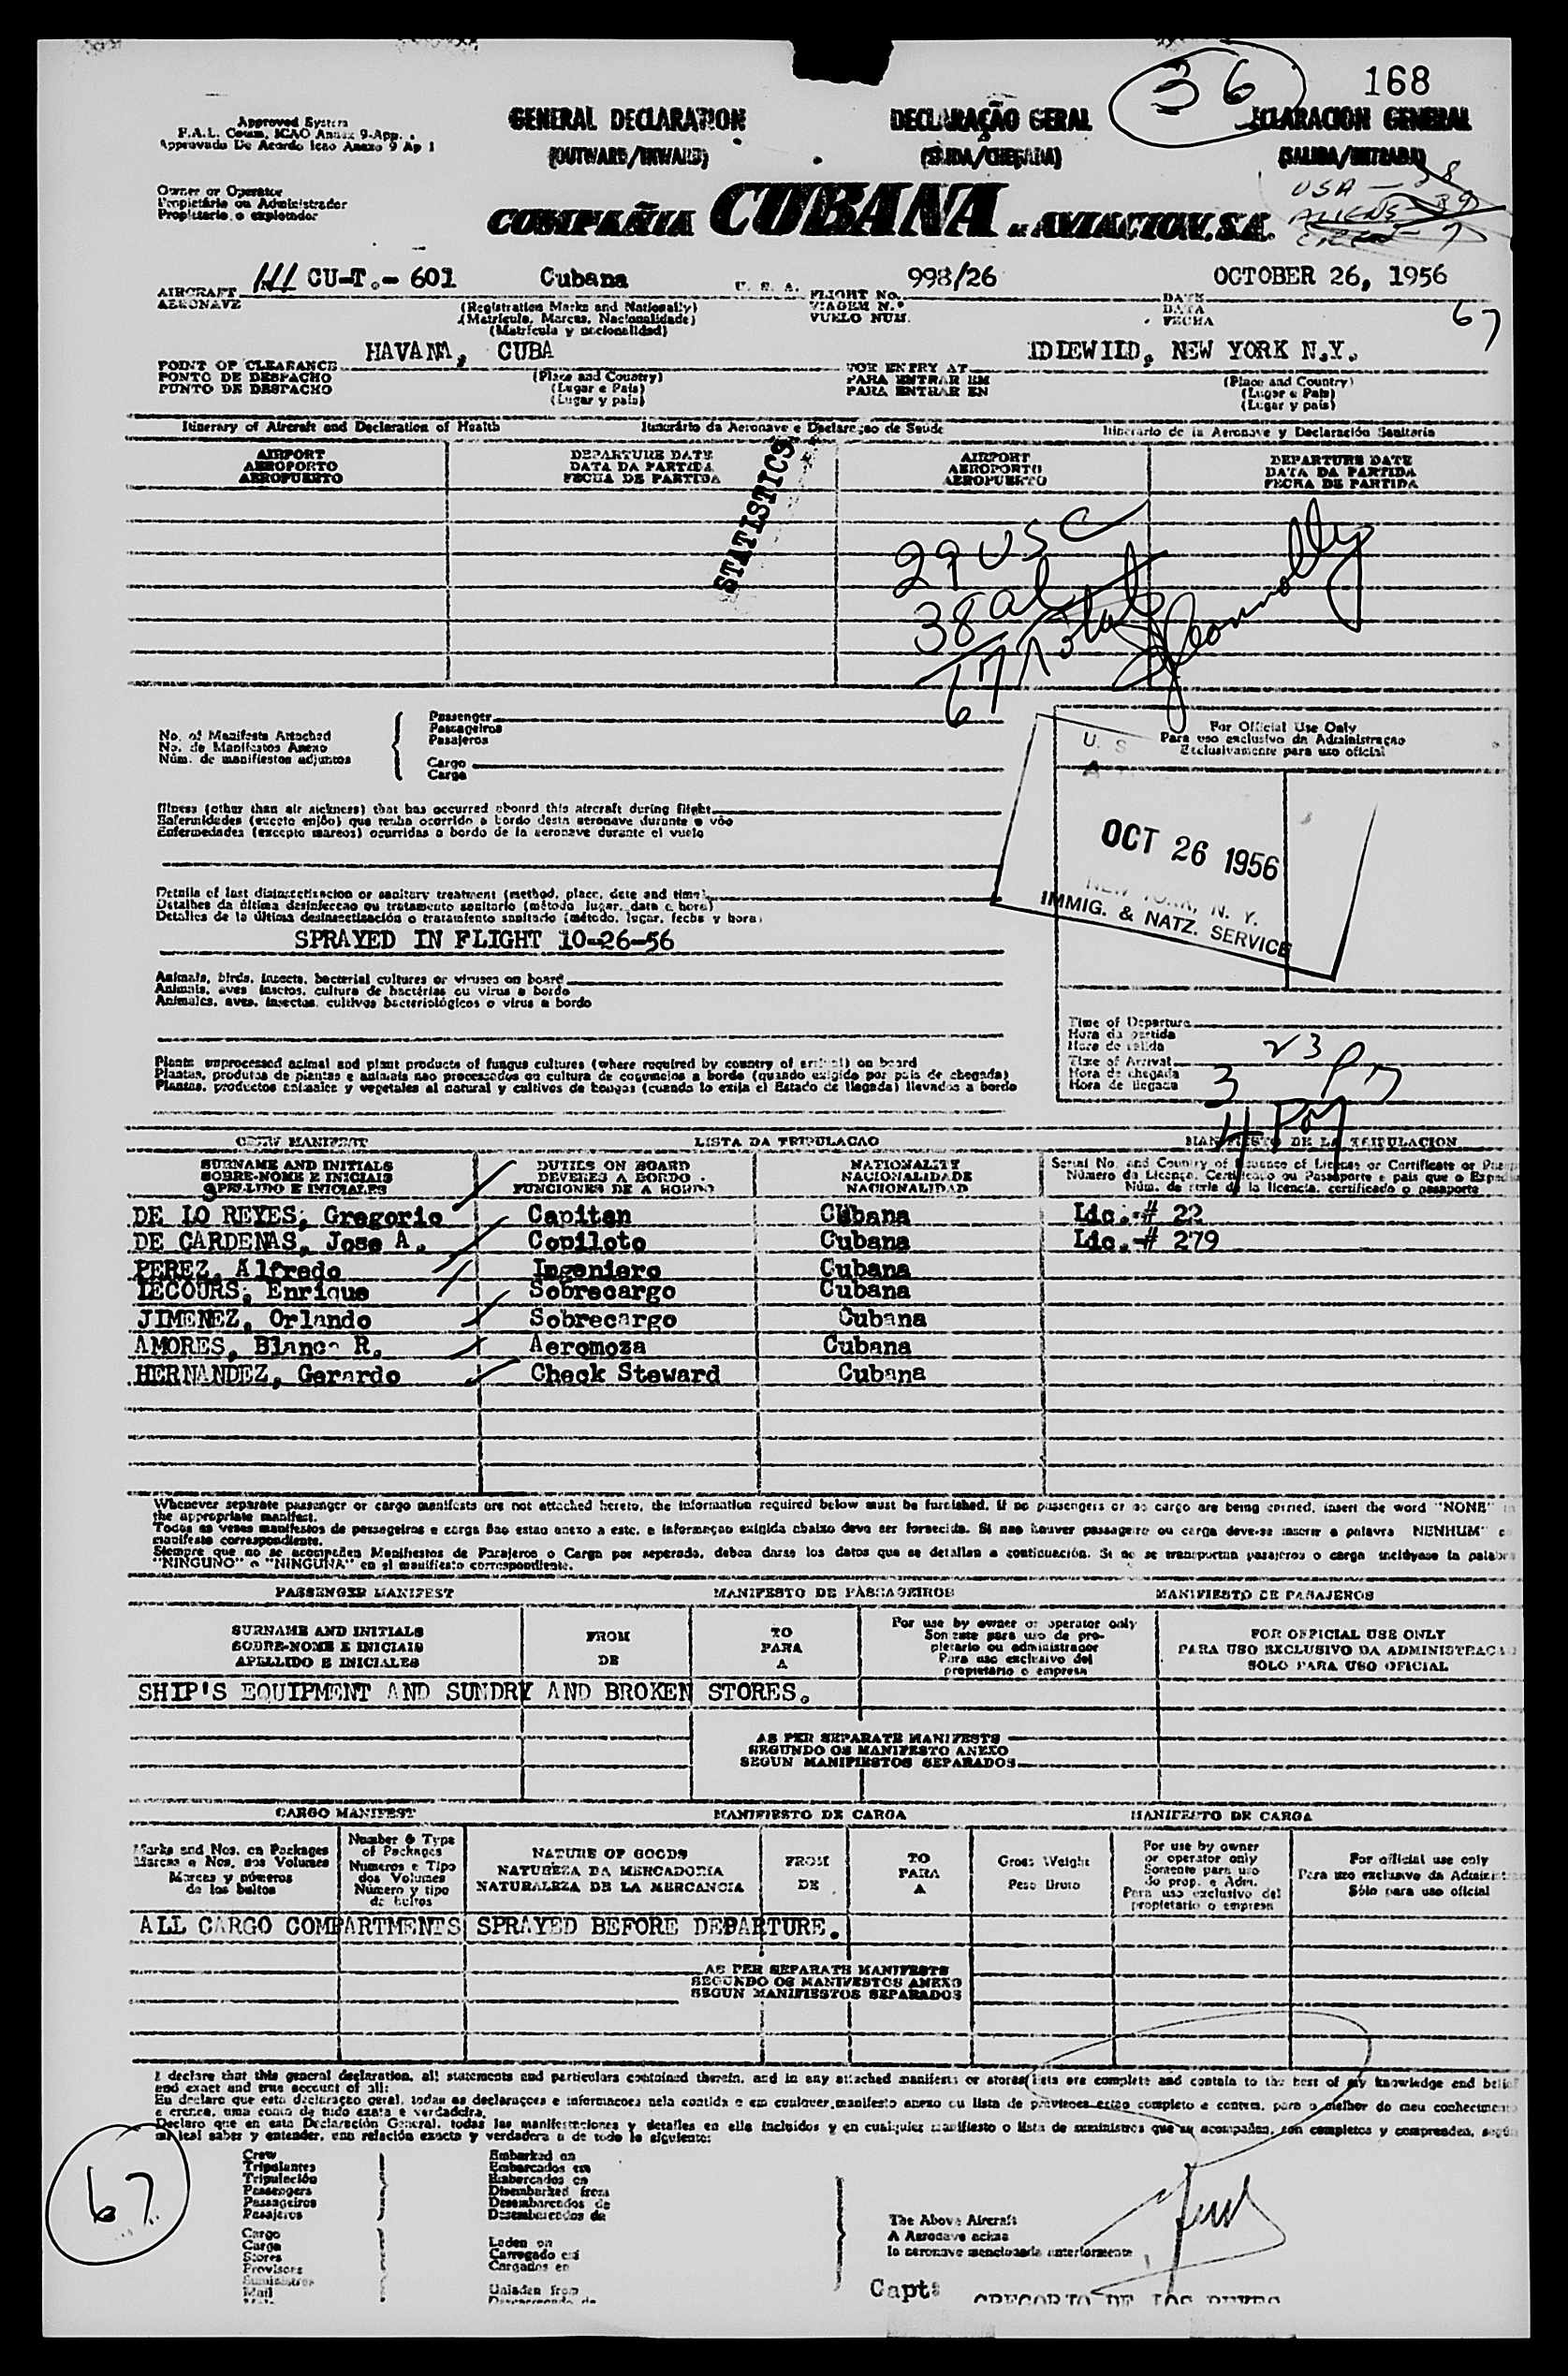 36
168
Approved System
F.A.L. Comm. ICAO Annex 9-App.
Approvado De Acordo Icao Anexo 9 Ap 1
GENERAL DECLARATION
DECLARAÇÃO GERAL
CLARACION GENERAL
(OUTWARD/INWARD)
(SAIDA/CHEGADA)
(SALIDA/ENTRADA)
Owner or Operator
Propietário ou Administrador
Propietario o explotador
COMPAÑIA CUBANA DE AVIACION, S.A.
USA - 38
ALIENS 39
AIRCRAFT CU-T.- 601 Cubana U. S. A. FLIGHT No. 998/26 DATE OCTOBER 26, 1956
AERONAVE (Registration Marks and Nationality) VIAGEM N.º DATA
(Matrícula, Marcas, Nacionalidade) VUELO NUM. FECHA
(Matrícula y nacionalidad)
67
POINT OF CLEARANCE HAVANA, CUBA FOR ENTRY AT IDLEWILD, NEW YORK N.Y.
PONTO DE DESPACHO (Place and Country) PARA ENTRAR EM (Place and Country)
PUNTO DE DESPACHO (Lugar e País) PARA ENTRAR EN (Lugar e País)
(Lugar y país) (Lugar y país)
Itinerary of Aircraft and Declaration of Health Itinerário da Aeronave e Declaraçao de Saude Itinerario de la Aeronave y Declaración Sanitaria
AIRPORT DEPARTURE DATE AIRPORT DEPARTURE DATE
AEROPORTO DATA DA PARTIDA AEROPORTO DATA DA PARTIDA
AEROPUERTO FECHA DE PARTIDA AEROPUERTO FECHA DE PARTIDA
STATISTICS
29 USC
38 al
67 Total
No. of Manifests Attached
No. de Manifestos Anexo
Núm. de manifiestos adjuntos
Passenger
Passageiros
Pasajeros
Cargo
Carga
For Official Use Only
Para uso exclusivo da Administraçao
Exclusivamente para uso oficial
U. S
OCT 26 1956
NEW YORK, N. Y.
IMMIG. & NATZ. SERVICE
Illness (other than air sickness) that has occurred aboard this aircraft during flight
Enfermidades (exceto enjôo) que tenha ocorrido a bordo desta aeronave durante o vôo
Enfermedades (excepto mareos) ocurridas a bordo de la aeronave durante el vuelo
Details of last disinsectisation or sanitary treatment (method, place, date and time)
Detalhes da última desinfeccao ou tratamento sanitario (método, lugar, data e hora)
Detalles de la última desinsectización o tratamiento sanitario (método, lugar, fecha y hora)
SPRAYED IN FLIGHT 10-26-56
Animals, birds, insects, bacterial cultures or viruses on board
Animais, aves insetos, cultura de bactérias ou virus a bordo
Animales, aves, insectos, cultivos bacteriológicos o virus a bordo
Plants unprocessed animal and plant products of fungus cultures (where required by country of arrival) on board
Plantas, produtos de plantas e animais nao processados ou cultura de cogumelos a bordo (quando exigido por país de chegada)
Plantas, productos animales y vegetales al natural y cultivos de hongos (cuando lo exija el Estado de llegada) llevados a bordo
Time of Departure
Hora da partida
Hora de salida
Time of Arrival
Hora de chegada
Hora de llegada
3
4 PM
CREW MANIFEST LISTA DA TRIPULACAO MANIFIESTO DE LA TRIPULACION
SURNAME AND INITIALS DUTIES ON BOARD NATIONALITY Serial No. and Country of Issuance of License or Certificate or
SOBRE-NOME E INICIAIS DEVERES A BORDO NACIONALIDADE Número da Licença, Certificado ou Passaporte e pais que o
APELLIDO E INICIALES FUNCIONES DE A BORDO NACIONALIDAD Núm. de serie de la licencia, certificado o pasaporte
DE LO REYES, Gregorio Capitan Cubana Lic.-# 22
DE CARDENAS, Jose A. Copiloto Cubana Lic.-# 279
PEREZ, Alfredo Ingeniero Cubana
LECOURS, Enrique Sobrecargo Cubana
JIMENEZ, Orlando Sobrecargo Cubana
AMORES, Blanca R. Aeromoza Cubana
HERNANDEZ, Gerardo Check Steward Cubana
Whenever separate passenger or cargo manifests are not attached hereto, the information required below must be furnished. If no passengers or no cargo are being carried, insert the word "NONE" in
the appropriate manifest.
Todas as vezes manifestos de passageiros e carga nao estao anexo a este, a informaçao exigida abaixo deve ser fornecida. Si nao houver passageiro ou carga deve-se inserir a palavra NENHUM"
manifesto correspondiente.
Siempre que no se acompañen Manifiestos de Pasajeros o Carga por separado, deben darse los datos que se detallan a continuación. Si no se transportan pasajeros o carga inclúyase la palabra
"NINGUNO" o "NINGUNA" en el manifiesto correspondiente.
PASSENGER MANIFEST MANIFESTO DE PASSAGEIROS MANIFIESTO DE PASAJEROS
SURNAME AND INITIALS FROM TO For use by owner or operator only FOR OFFICIAL USE ONLY
SOBRE-NOME E INICIAIS PARA Somente para uso de pro- PARA USO EXCLUSIVO DA ADMINISTRACAO
APELLIDO E INICIALES DE A pietario ou administrador SOLO PARA USO OFICIAL
Para uso exclusivo del
propietario o empresa
SHIP'S EQUIPMENT AND SUNDRY AND BROKEN STORES.
AS PER SEPARATE MANIFESTS
SEGUNDO OS MANIFESTO ANEXO
SEGUN MANIFIESTOS SEPARADOS
CARGO MANIFEST MANIFIESTO DE CARGA MANIFESTO DE CARGA
Marks and Nos. on Packages Number & Type of Packages NATURE OF GOODS FROM TO Gross Weight For use by owner or operator only For official use only
Marcas e Nos. dos Volumes Numeros e Tipo dos Volumes NATUREZA DA MERCADORIA PARA Somente para uso do prop. e Adm. Para uso exclusivo da
Marcas y números de los bultos Número y tipo de bultos NATURALEZA DE LA MERCANCIA DE A Peso Bruto Para uso exclusivo del propietario o empresa Sólo para uso oficial
ALL CARGO COMPARTMENTS SPRAYED BEFORE DEPARTURE.
AS PER SEPARATE MANIFESTS
SEGUNDO OS MANIFESTOS ANEXO
SEGUN MANIFIESTOS SEPARADOS
I declare that this general declaration, all statements and particulars contained therein, and in any attached manifests or stores lists are complete and contain to the best of my knowledge and belief
and exact and true account of all:
Eu declaro que esta declaraçao geral, todas as declaraçoes e informacoes nela contida e em cualquer manifesto anexo ou lista de provisoes estao completo e contem, para o melhor do meu conhecimento
e crença, uma conta de tudo exata e verdadeira.
Declaro que en esta Declaración General, todas las manifestaciones y detalles en ella incluidos y en cualquier manifiesto o lista de suministros que se acompañan, son completos y comprenden, según
mi leal saber y entender, una relación exacta y verdadera a de todo lo siguiente:
67
Crew
Tripulantes
Tripulación
Passengers
Passageiros
Pasajeros
Cargo
Carga
Stores
Provisoes
Suministros
Mail
Embarked on
Embarcados em
Embarcados en
Disembarked from
Desembarcados de
Desembarcados de
Laden on
Carregado em
Cargados en
Unladen from
The Above Aircraft
A Aeronave acima
la aeronave mencionada anteriormente
Capt:
GREGORIO DE LOS REYES